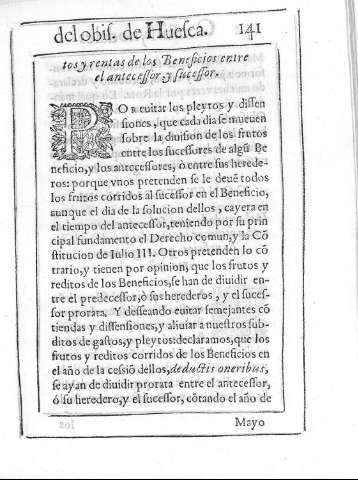 del obis. de Huesca. 141
tos y rentas de los Beneficios entre
el antecessor y sucessor.
POR euitar los pleytos y dissen
siones, que cada dia se mueuen
sobre la diuision de los frutos
entre los sucessores de algũ Be
neficio, y los antecessores, ò entre sus herede-
ros: porque vnos pretenden se le deuẽ todos
los frutos corridos al sucessor en el Beneficio,
aunque el dia de la solucion dellos, cayera en
el tiempo del antecessor, teniendo por su prin
cipal fundamento el Derecho comun, y la Cõ
stitucion de Iulio III. Otros pretenden lo cõ
trario, y tienen por opinion, que los frutos y
reditos de los Beneficios, se han de diuidir en-
tre el predecessor, ò sus herederos, y el suces-
sor prorata. Y desseando euitar semejantes cõ
tiendas y dissensiones, y aliuiar a nuestros sub-
ditos de gastos, y pleytos: declaramos, que los
frutos y reditos corridos de los Beneficios en
el año de la cessiõ dellos, deductis oneribus,
se ayan de diuidir prorata entre el antecessor,
ò su heredero, y el sucessor, cõtando el año de
Mayo